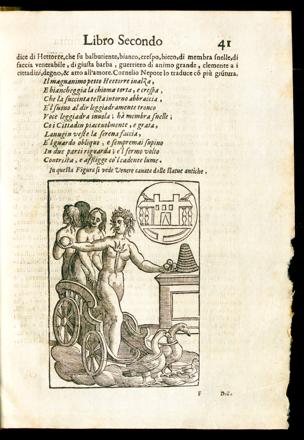 Libro Secondo 41
dice di Hettorre, che fu balbutiente, bianco, crespo, bieco, di membra snelle, di
faccia venerabile, di giusta barba, guerriero di animo grande, clemente a i
cittadini, degno, & atto all'amore. Cornelio Nepote lo traduce cõ più grãtura.
Il magnanimo petto Hettorre inalza,
E biancheggia la chioma torta, e crespa,
Che la succinta testa intorno abbraccia,
E'l suono al dir leggiadramente tronco
Voce leggiadra inuola; hà membra snelle;
Co i Cittadin piaceuolmente, e grata,
Lanugin veste la serena faccia,
E'l guardo obliquo, e sempre mai supino
In due parti riguarda; e'l fermo volto
Contrista, e affligge co'l cadente lume.
In questa Figura si vede Venere cauata dalle statue antiche.
F